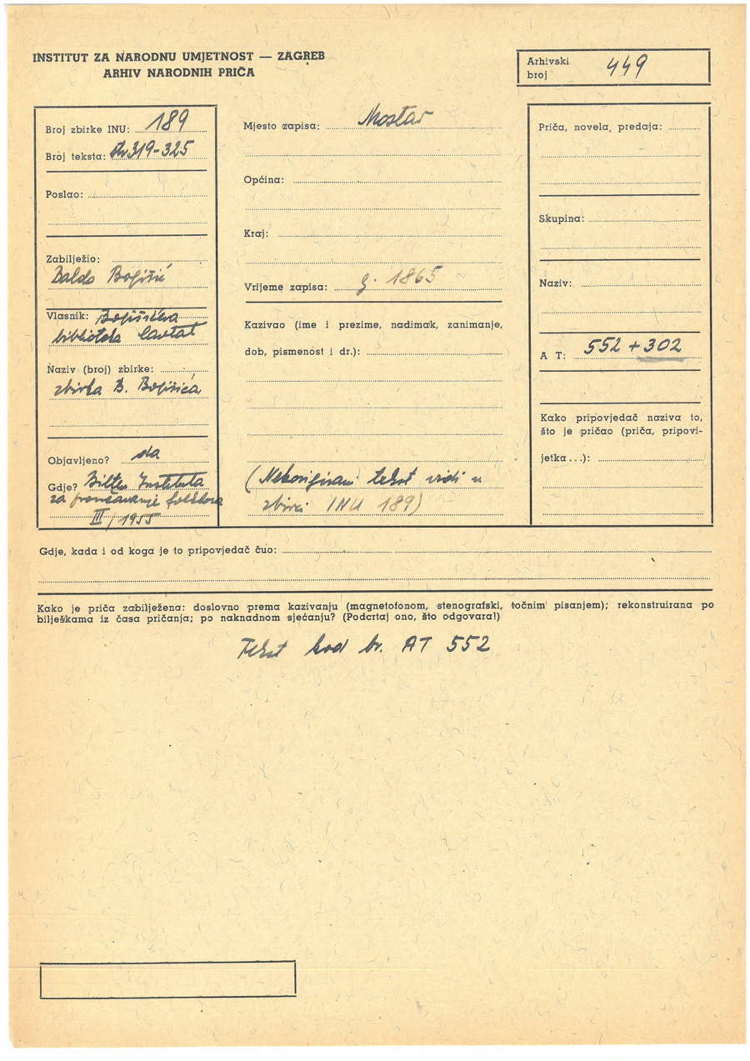 INSTITUT ZA NARODNU UMJETNOST — ZAGREB
ARHIV NARODNIH PRIČA
Arhivski broj 449
Broj zbirke INU: 189
Broj teksta: str. 319-325
Poslao:
Zabilježio:
Baldo Bogišić
Vlasnik: Bogišićeva
biblioteka Cavtat
Naziv (broj) zbirke:
zbirka B. Bogišića
Objavljeno? da
Gdje? Bilten Instituta
za proučavanje folklora
III/1955
Mjesto zapisa: Mostar
Općina:
Kraj:
Vrijeme zapisa: g. 1865
Kazivao (ime i prezime, nadimak, zanimanje,
dob, pismenost i dr.):
(Nekorigirani tekst vidi u
zbirci INU 189)
Priča, novela, predaja:
Skupina:
Naziv:
A T: 552 + 302
Kako pripovjedač naziva to,
što je pričao (priča, pripovi-
jetka...):
Gdje, kada i od koga je to pripovjedač čuo:
Kako je priča zabilježena: doslovno prema kazivanju (magnetofonom, stenografski, točnim pisanjem); rekonstruirana po
bilješkama iz časa pričanja; po naknadnom sjećanju? (Podcrtaj ono, što odgovara!)
Tekst kod br. AT 552